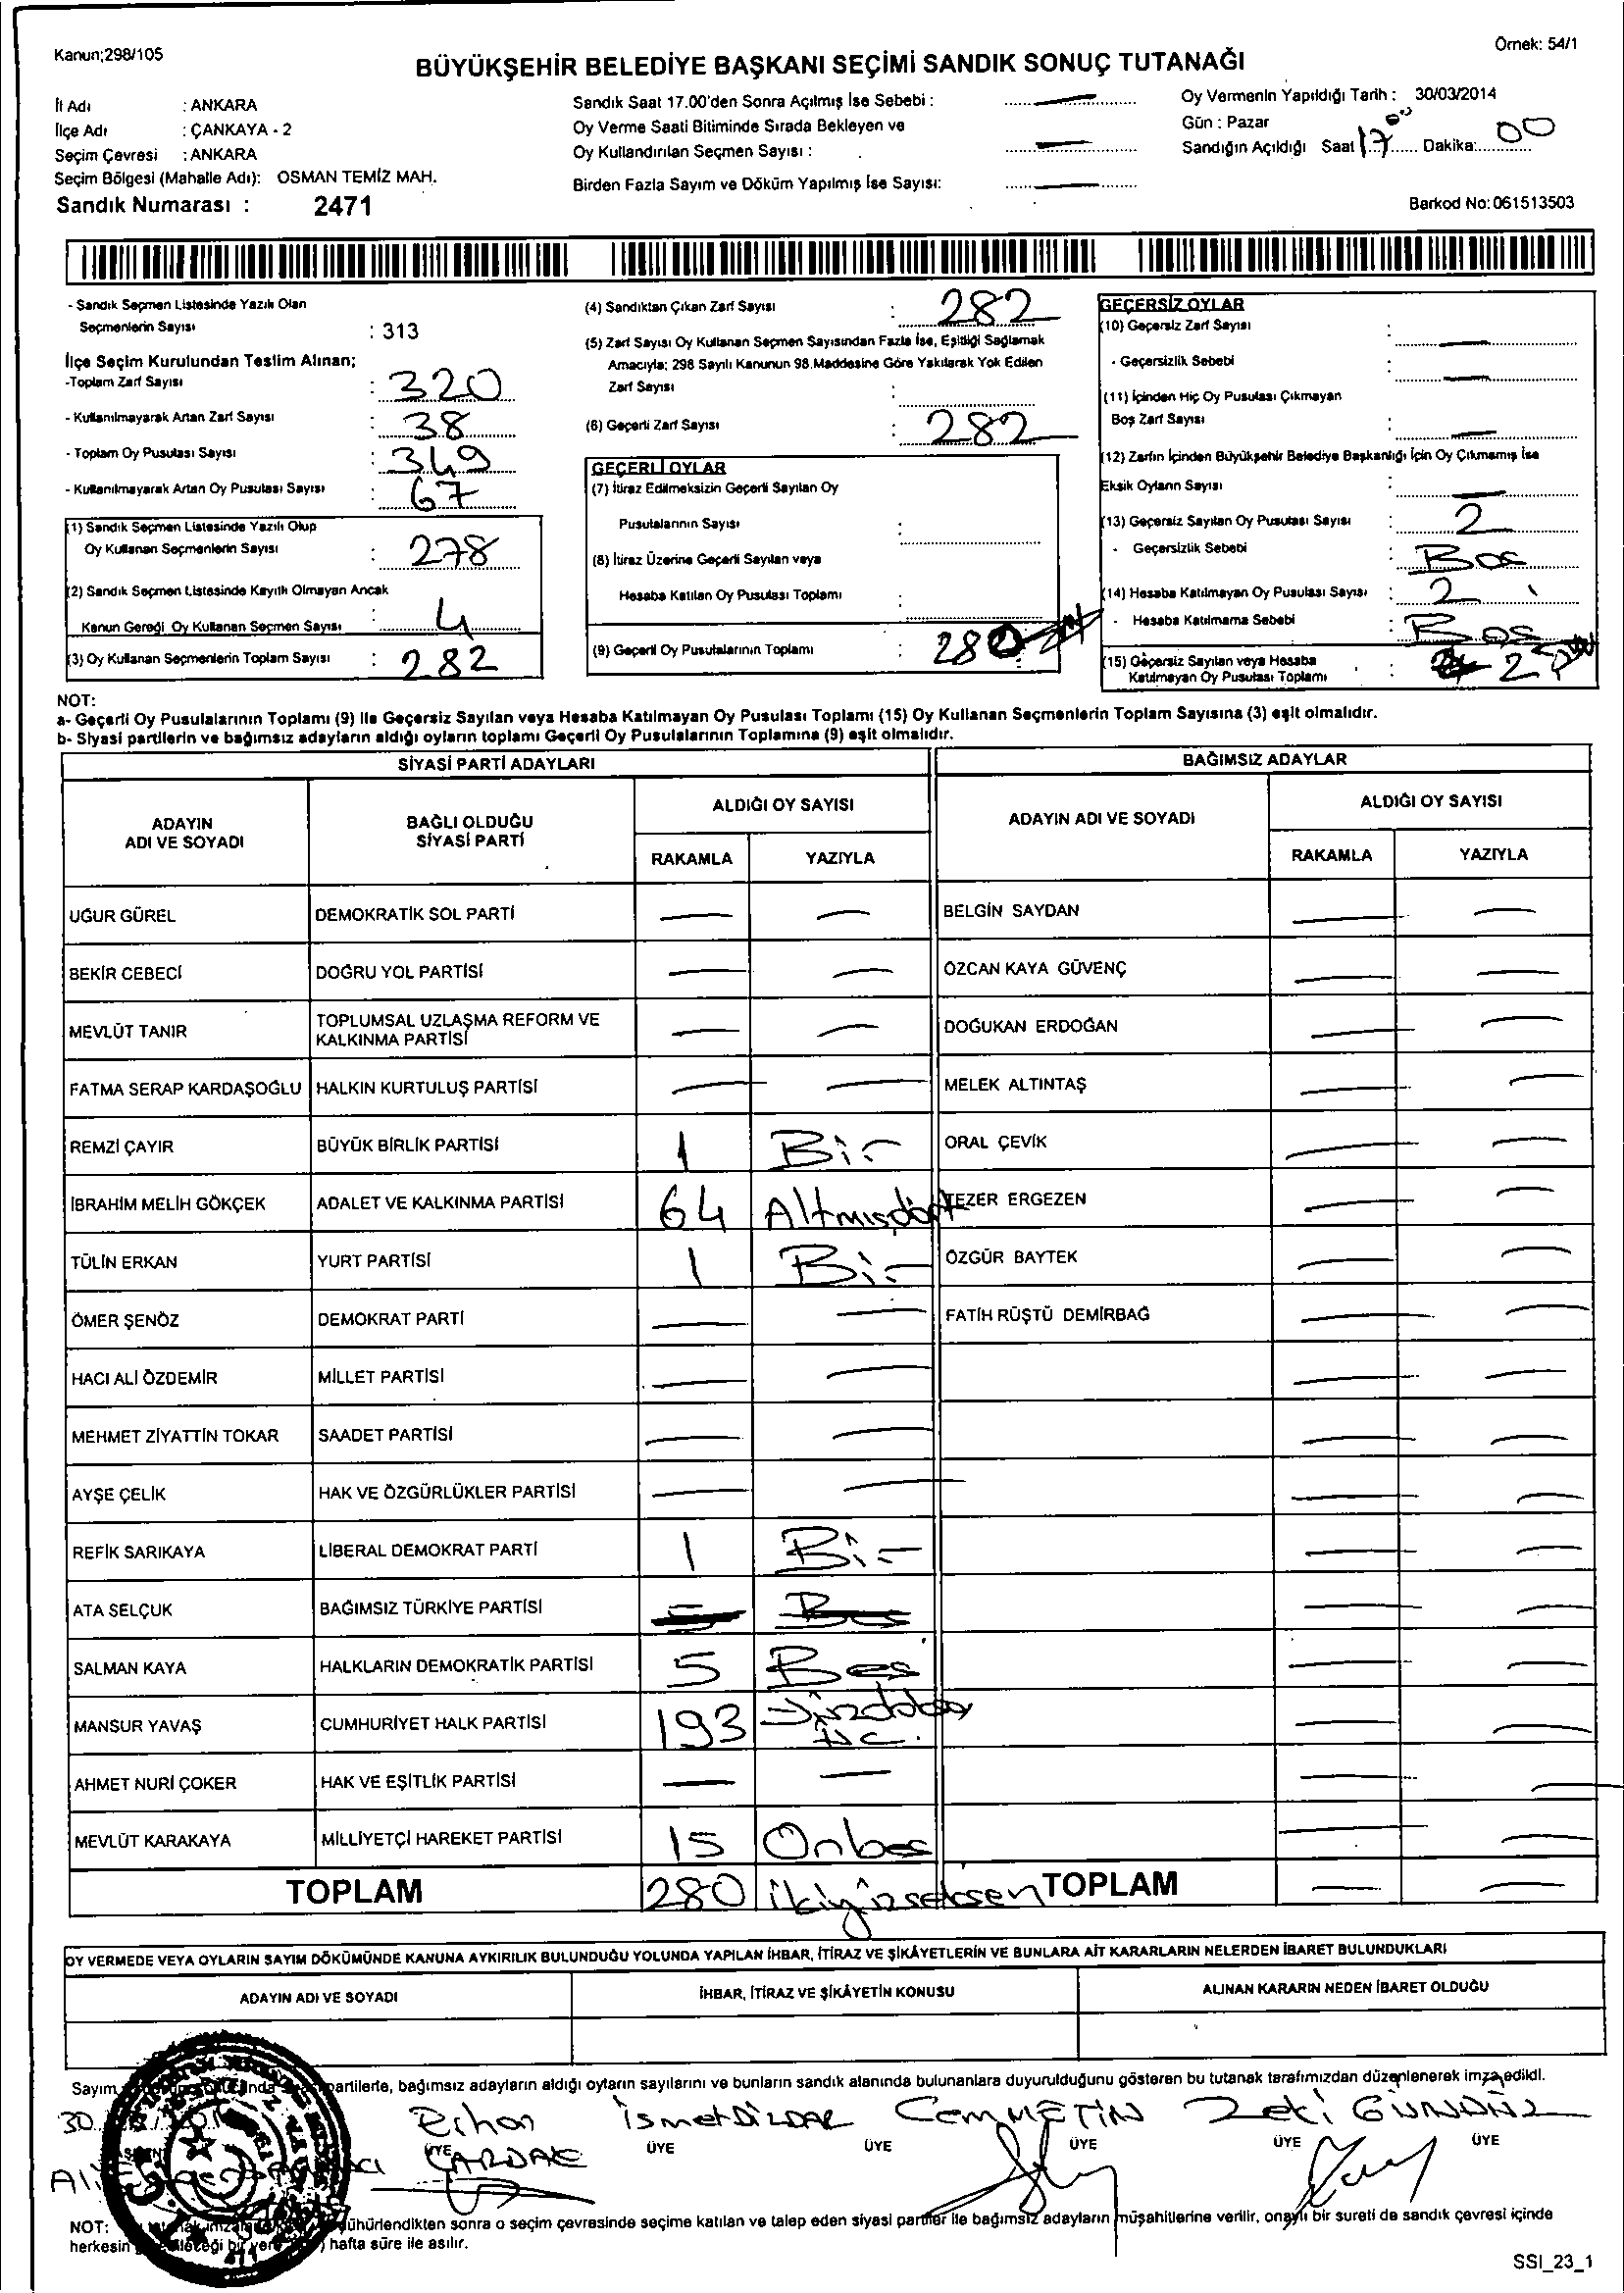 Kanun;298/105
Örnek: 54/1
BÜYÜKŞEHİR BELEDİYE BAŞKANI SEÇİMİ SANDIK SONUÇ TUTANAĞI
İl Adı : ANKARA
İlçe Adı : ÇANKAYA - 2
Seçim Çevresi : ANKARA
Seçim Bölgesi (Mahalle Adı): OSMAN TEMİZ MAH.
Sandık Numarası : 2471
Sandık Saat 17.00'den Sonra Açılmış İse Sebebi : —
Oy Verme Saati Bitiminde Sırada Bekleyen ve
Oy Kullandırılan Seçmen Sayısı : —
Birden Fazla Sayım ve Döküm Yapılmış İse Sayısı: —
Oy Vermenin Yapıldığı Tarih : 30/03/2014
Gün : Pazar
Sandığın Açıldığı Saat 17 00 Dakika: 00
Barkod No: 061513503
- Sandık Seçmen Listesinde Yazılı Olan
Seçmenlerin Sayısı : 313
İlçe Seçim Kurulundan Teslim Alınan;
-Toplam Zarf Sayısı : 320
- Kullanılmayarak Artan Zarf Sayısı : 38
- Toplam Oy Pusulası Sayısı : 349
- Kullanılmayarak Artan Oy Pusulası Sayısı : 67
(1) Sandık Seçmen Listesinde Yazılı Olup
Oy Kullanan Seçmenlerin Sayısı : 278
(2) Sandık Seçmen Listesinde Kayıtlı Olmayan Ancak
Kanun Gereği Oy Kullanan Seçmen Sayısı : 4
(3) Oy Kullanan Seçmenlerin Toplam Sayısı : 282
(4) Sandıktan Çıkan Zarf Sayısı : 282
(5) Zarf Sayısı Oy Kullanan Seçmen Sayısından Fazla İse, Eşitliği Sağlamak
Amacıyla; 298 Sayılı Kanunun 98.Maddesine Göre Yakılarak Yok Edilen
Zarf Sayısı :
(6) Geçerli Zarf Sayısı : 282
GEÇERLİ OYLAR
(7) İtiraz Edilmeksizin Geçerli Sayılan Oy
Pusulalarının Sayısı :
(8) İtiraz Üzerine Geçerli Sayılan veya
Hesaba Katılan Oy Pusulası Toplamı :
(9) Geçerli Oy Pusulalarının Toplamı : 280
GEÇERSİZ OYLAR
(10) Geçersiz Zarf Sayısı : —
- Geçersizlik Sebebi : —
(11) İçinden Hiç Oy Pusulası Çıkmayan
Boş Zarf Sayısı : —
(12) Zarfın İçinden Büyükşehir Belediye Başkanlığı İçin Oy Çıkmamış İse
Eksik Oyların Sayısı : —
(13) Geçersiz Sayılan Oy Pusulası Sayısı : 2
- Geçersizlik Sebebi : Boş
(14) Hesaba Katılmayan Oy Pusulası Sayısı : 2
- Hesaba Katılmama Sebebi : Boş
(15) Geçersiz Sayılan veya Hesaba
Katılmayan Oy Pusulası Toplamı : 2
NOT:
a- Geçerli Oy Pusulalarının Toplamı (9) ile Geçersiz Sayılan veya Hesaba Katılmayan Oy Pusulası Toplamı (15) Oy Kullanan Seçmenlerin Toplam Sayısına (3) eşit olmalıdır.
b- Siyasi partilerin ve bağımsız adayların aldığı oyların toplamı Geçerli Oy Pusulalarının Toplamına (9) eşit olmalıdır.
SİYASİ PARTİ ADAYLARI
BAĞIMSIZ ADAYLAR
ADAYIN
ADI VE SOYADI
BAĞLI OLDUĞU
SİYASİ PARTİ
ALDIĞI OY SAYISI
RAKAMLA YAZIYLA
ADAYIN ADI VE SOYADI
ALDIĞI OY SAYISI
RAKAMLA YAZIYLA
UĞUR GÜREL DEMOKRATİK SOL PARTİ — — BELGİN SAYDAN — —
BEKİR CEBECİ DOĞRU YOL PARTİSİ — — ÖZCAN KAYA GÜVENÇ — —
MEVLÜT TANIR TOPLUMSAL UZLAŞMA REFORM VE
KALKINMA PARTİSİ — — DOĞUKAN ERDOĞAN — —
FATMA SERAP KARDAŞOĞLU HALKIN KURTULUŞ PARTİSİ — — MELEK ALTINTAŞ — —
REMZİ ÇAYIR BÜYÜK BİRLİK PARTİSİ 1 Bir ORAL ÇEVİK — —
İBRAHİM MELİH GÖKÇEK ADALET VE KALKINMA PARTİSİ 64 Altmışdört TEZER ERGEZEN — —
TÜLİN ERKAN YURT PARTİSİ 1 Bir ÖZGÜR BAYTEK — —
ÖMER ŞENÖZ DEMOKRAT PARTİ — — FATİH RÜŞTÜ DEMİRBAĞ — —
HACI ALİ ÖZDEMİR MİLLET PARTİSİ — — — —
MEHMET ZİYATTİN TOKAR SAADET PARTİSİ — — — —
AYŞE ÇELİK HAK VE ÖZGÜRLÜKLER PARTİSİ — — — —
REFİK SARIKAYA LİBERAL DEMOKRAT PARTİ 1 Bir — —
ATA SELÇUK BAĞIMSIZ TÜRKİYE PARTİSİ 5 Beş — —
SALMAN KAYA HALKLARIN DEMOKRATİK PARTİSİ 5 Beş — —
MANSUR YAVAŞ CUMHURİYET HALK PARTİSİ 193 Yüzdoksan
üç. — —
AHMET NURİ ÇOKER HAK VE EŞİTLİK PARTİSİ — — — —
MEVLÜT KARAKAYA MİLLİYETÇİ HAREKET PARTİSİ 15 Onbeş — —
TOPLAM 280 ikiyüzseksen TOPLAM — —
OY VERMEDE VEYA OYLARIN SAYIM DÖKÜMÜNDE KANUNA AYKIRILIK BULUNDUĞU YOLUNDA YAPILAN İHBAR, İTİRAZ VE ŞİKÂYETLERİN VE BUNLARA AİT KARARLARIN NELERDEN İBARET BULUNDUKLARI
ADAYIN ADI VE SOYADI İHBAR, İTİRAZ VE ŞİKÂYETİN KONUSU ALINAN KARARIN NEDEN İBARET OLDUĞU
Sayım partilerle, bağımsız adayların aldığı oyların sayılarını ve bunların sandık alanında bulunanlara duyurulduğunu gösteren bu tutanak tarafımızdan düzenlenerek imza edildi.
30. Rihan İsmet DİLDAR Cem METİN Zeki GÜNDÜZ
ÜYE ÜYE ÜYE ÜYE ÜYE ÜYE
Ali ÇARDAK
NOT: mühürlendikten sonra o seçim çevresinde seçime katılan ve talep eden siyasi partiler ile bağımsız adayların müşahitlerine verilir, onaylı bir sureti de sandık çevresi içinde
herkesin bir yere hafta süre ile asılır.
SSI_23_1